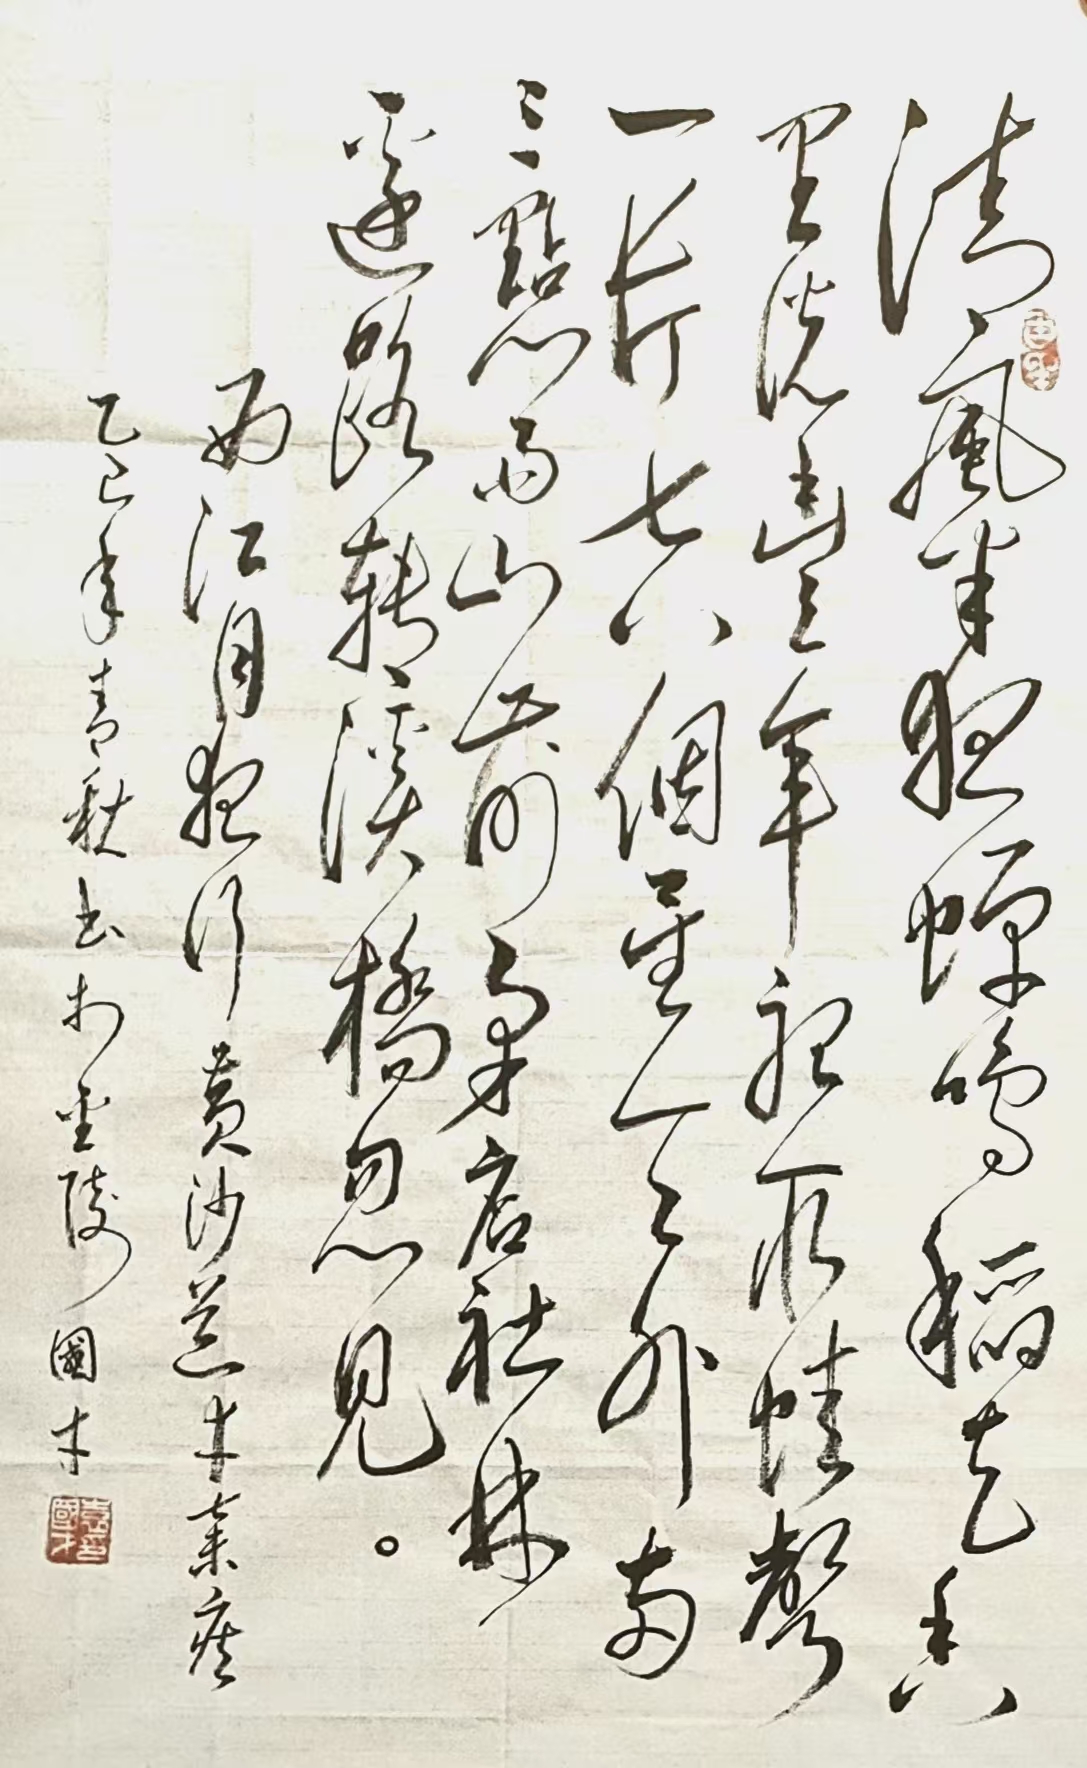 清風半夜蟬鳴稻花香
里说豐年聽取蛙聲
一片七八個星天外兩
三點雨山前茅店社林
邊路轉溪橋忽見。
西江月夜行黄沙道棄疾
乙巳年青秋书於金陵國才